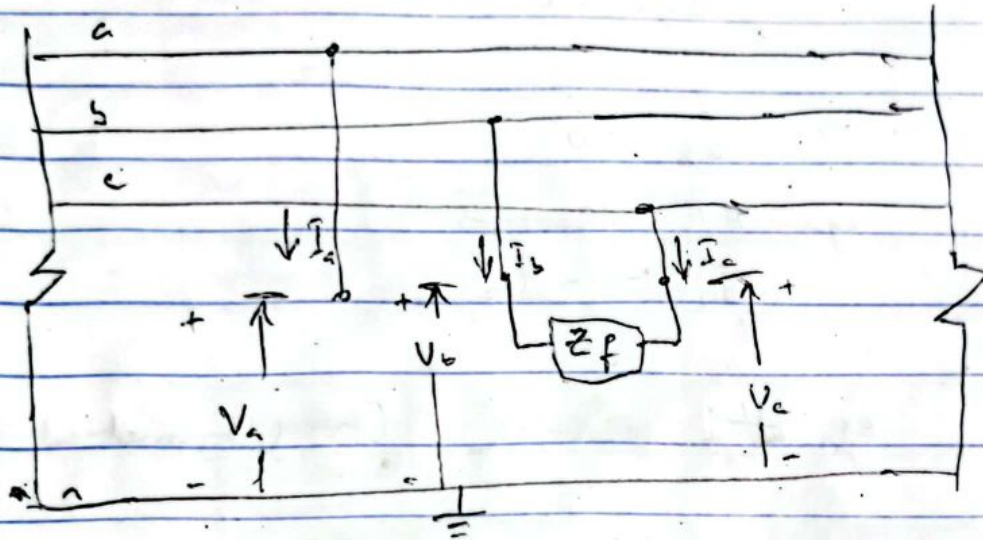 a
b
c
I_a
I_b
I_c
+
+
+
Z_f
V_b
V_a
V_c
n
-
-
-